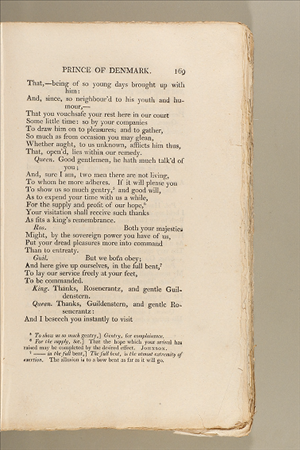 PRINCE OF DENMARK. 169
That,—being of so young days brought up with
him:
And, since, so neighbour'd to his youth and hu-
mour,—
That you vouchsafe your rest here in our court
Some little time: so by your companies
To draw him on to pleasures; and to gather,
So much as from occasion you may glean,
Whether aught, to us unknown, afflicts him thus,
That, open'd, lies within our remedy.
Queen. Good gentlemen, he hath much talk'd of
you;
And, sure I am, two men there are not living,
To whom he more adheres. If it will please you
To show us so much gentry,⁵ and good will,
As to expend your time with us a while,
For the supply and profit of our hope,⁶
Your visitation shall receive such thanks
As fits a king's remembrance.
Ros. Both your majesties
Might, by the sovereign power you have of us,
Put your dread pleasures more into command
Than to entreaty.
Guil. But we both obey;
And here give up ourselves, in the full bent,⁷
To lay our service freely at your feet,
To be commanded.
King. Thanks, Rosencrantz, and gentle Guil-
denstern.
Queen. Thanks, Guildenstern, and gentle Ro-
sencrantz:
And I beseech you instantly to visit
⁵ To show us so much gentry,] Gentry, for complaisance.
⁶ For the supply, &c.] That the hope which your arrival has
raised may be completed by the desired effect. JOHNSON.
⁷ —— in the full bent,] The full bent, is the utmost extremity of
exertion. The allusion is to a bow bent as far as it will go.